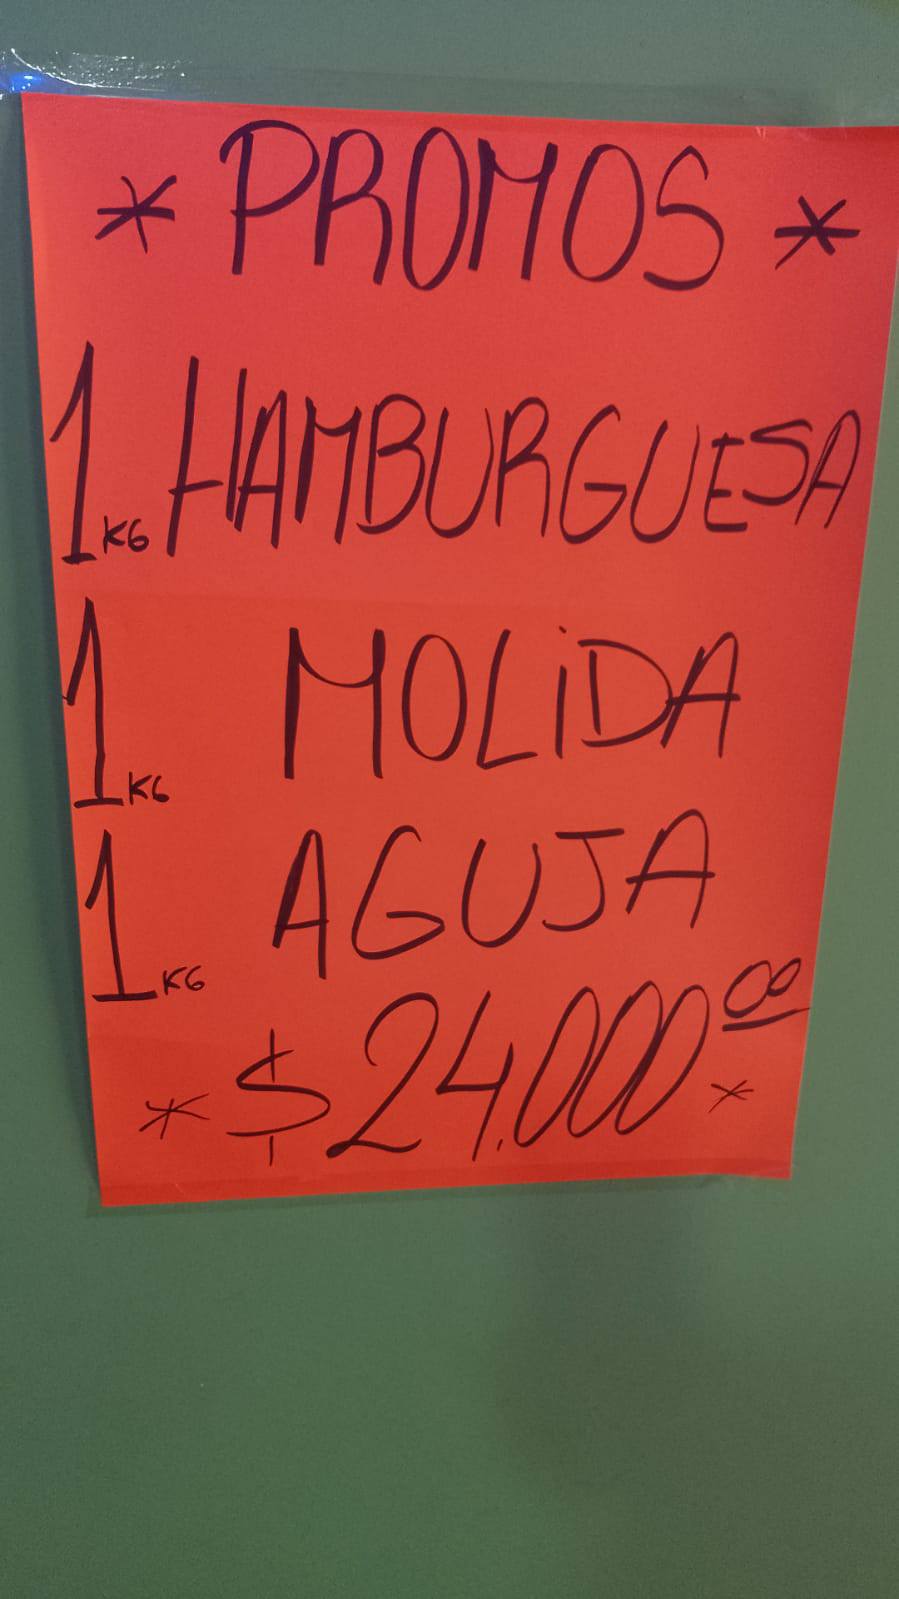 * PROMOS *
1KG HAMBURGUESA
1KG MOLiDA
1KG AGUJA
* $24.000 00 *